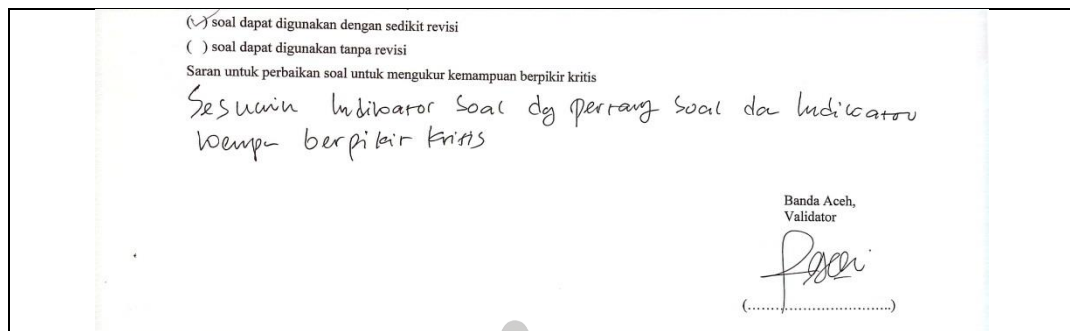 (✓) soal dapat digunakan dengan sedikit revisi
( ) soal dapat digunakan tanpa revisi
Saran untuk perbaikan soal untuk mengukur kemampuan berpikir kritis
Sesuain Indikator Soal dg Soal da Indicator
berpikir kritis
Banda Aceh,
Validator
(................................)